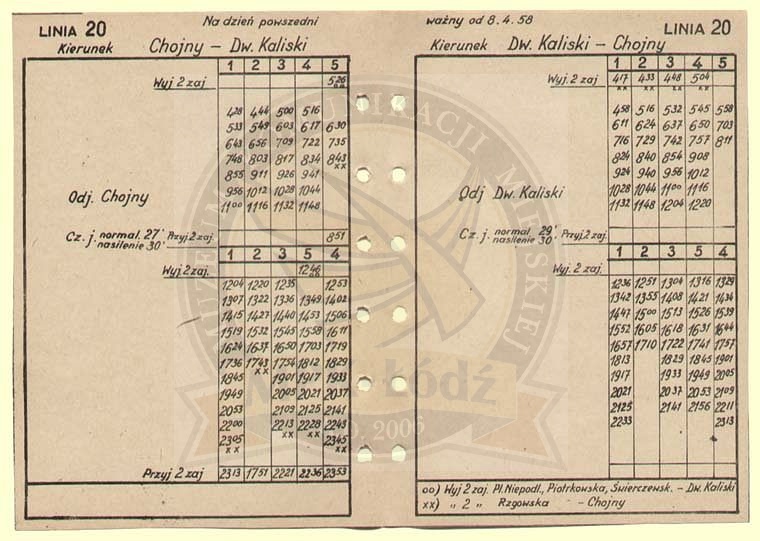 LINIA 20 Na dzień powszedni
Kierunek Chojny – Dw. Kaliski
1 2 3 4 5
Wyj 2 zaj 526
428 444 500 516
533 549 603 617 630
643 656 709 722 735
748 803 817 834 843 xx
855 911 926 941
Odj. Chojny 956 1012 1028 1044
1100 1116 1132 1148
Cz. j. normal. 27' nasilenie 30' Przyj 2 zaj. 851
1 2 3 5 4
Wyj 2 zaj. 1246
1204 1220 1235 1253
1307 1322 1336 1349 1402
1415 1427 1440 1453 1506
1519 1532 1545 1558 1611
1624 1637 1650 1703 1719
1736 1743 xx 1754 1812 1829
1845 1901 1917 1933
1949 2005 2021 2037
2053 2109 2125 2141
2200 2213 xx 2228 xx 2243
2305 xx 2345 xx
Przyj 2 zaj 2313 1751 2221 2236 2353
ważny od 8.4.58 LINIA 20
Kierunek Dw. Kaliski – Chojny
1 2 3 4 5
Wyj. 2 zaj 417 xx 433 xx 448 xx 504 xx
458 516 532 545 558
611 624 637 650 703
716 729 742 757 811
824 840 854 908
924 940 956 1012
Odj Dw. Kaliski 1028 1044 1100 1116
1132 1148 1204 1220
Cz. j. normal 29' nasilenie 30' Przyj 2 zaj.
1 2 3 5 4
Wyj. 2 zaj.
1236 1251 1304 1316 1329
1342 1355 1408 1421 1434
1447 1500 1513 1526 1539
1552 1605 1618 1631 1644
1657 1710 1722 1741 1757
1813 1829 1845 1901
1917 1933 1949 2005
2021 2037 2053 2109
2125 2141 2156 2211
2233 2313
oo) Wyj 2 zaj. Pl. Niepodl., Piotrkowska, Świerczewsk. – Dw. Kaliski
xx) „ 2 „ Rzgowska – Chojny